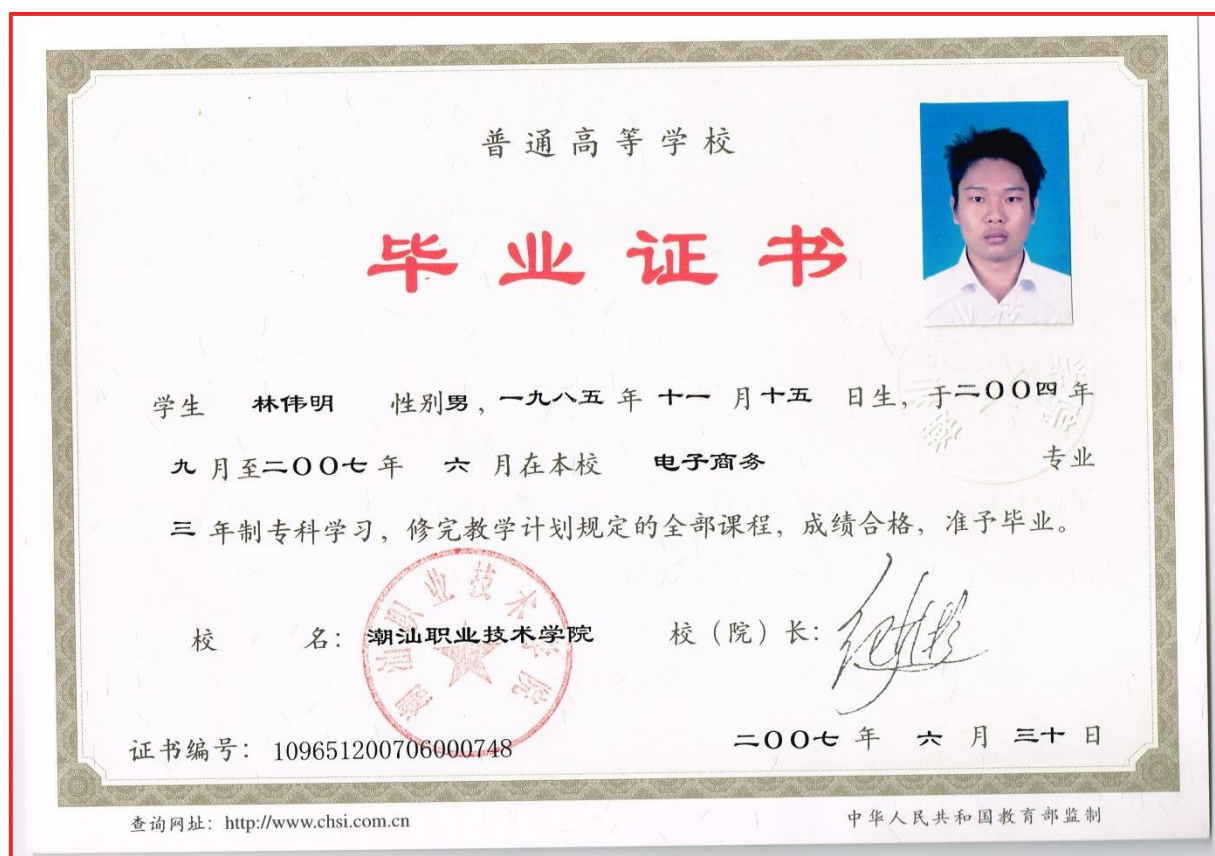 普通高等学校
毕业证书
学生 林伟明 性别男，一九八五年十一月十五日生，于二〇〇四年
九月至二〇〇七年 六月在本校 电子商务 专业
三年制专科学习，修完教学计划规定的全部课程，成绩合格，准予毕业。
潮汕职业技术学院
校 名：潮汕职业技术学院 校（院）长：
证书编号：109651200706000748 二〇〇七年 六月三十日
查询网址：http://www.chsi.com.cn 中华人民共和国教育部监制